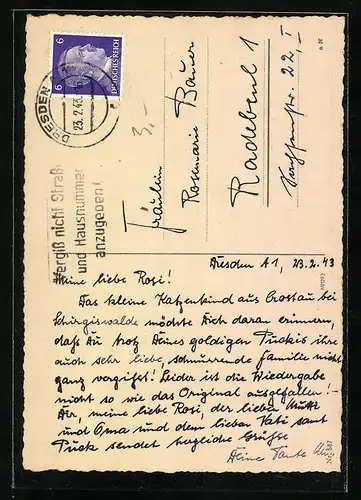 DRESDEN A
23.2.43
6 DEUTSCHES REICH 6
Vergiß nicht Straße
und Hausnummer
anzugeben!
3,-
Fräulein
Rosmarie Bauer
Radebeul 1
22, I
Dresden A1, 23.2.43
Meine liebe Rosi!
Das kleine Katzenkind aus Crostau bei
Schirgiswalde möchte Dich daran erinnern,
daß Du trotz Deines goldigen Puckis ihre
auch sehr liebe, schnurrende Familie nicht
ganz vergißt! Leider ist die Wiedergabe
nicht so wie das Original ausgefallen! -
Dir, meine liebe Rosi, der lieben Mutti
und Oma und dem lieben Vati samt
Puck sendet herzliche Grüße
Deine Tante